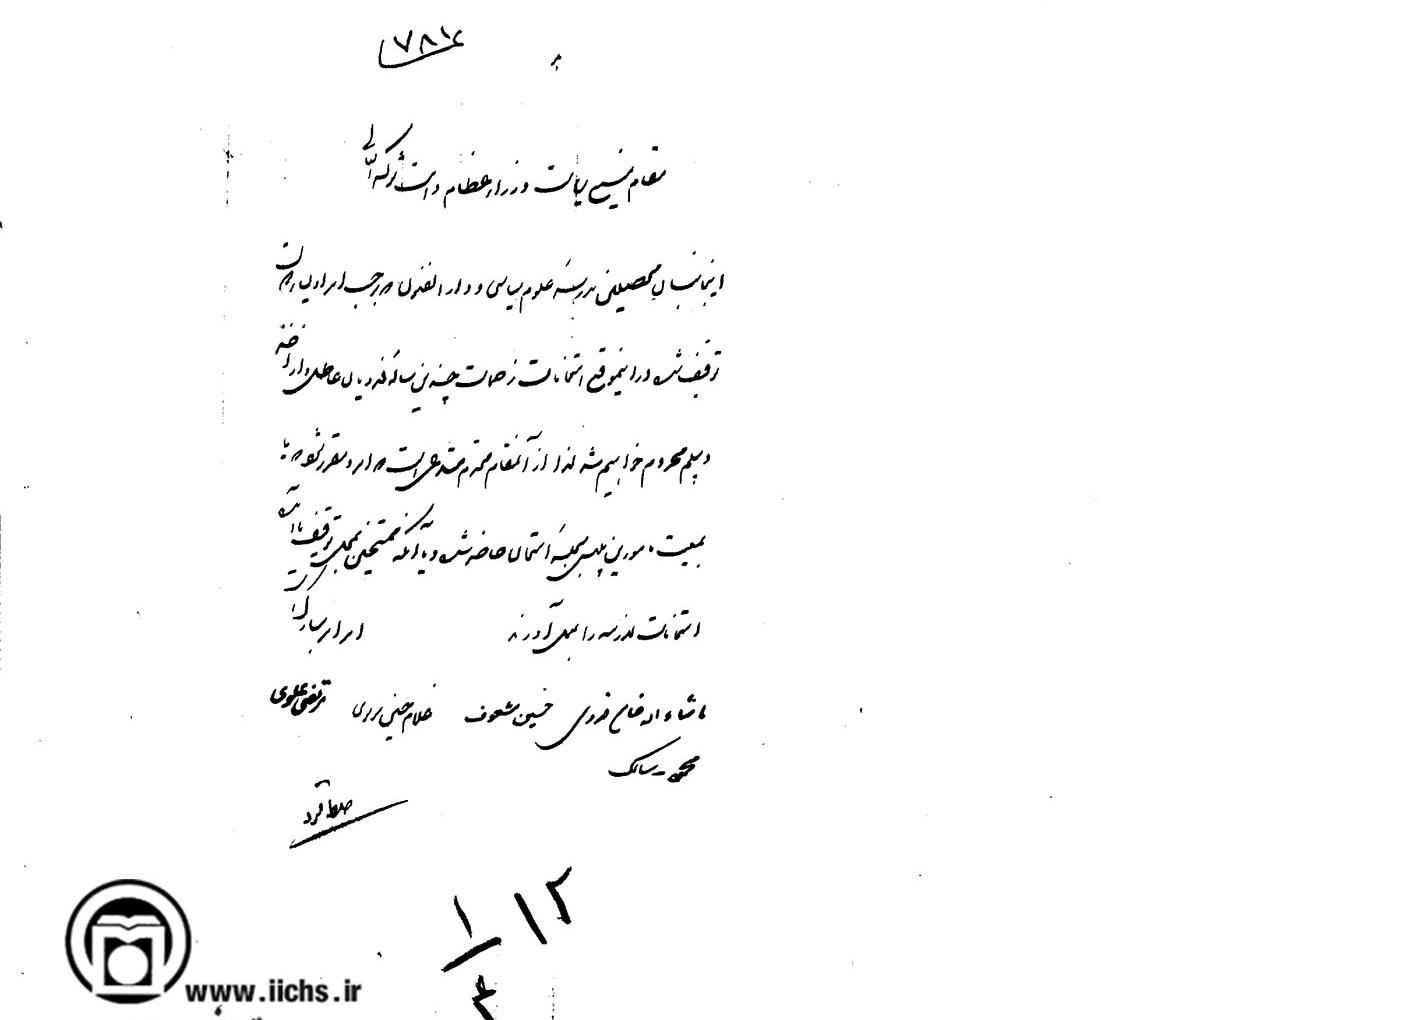 ۷۸۱۶
مقام منیع ریاست وزراء عظام دامت شوکته العالی
اینجانبان محصلین مدرسه علوم سیاسی و دارالفنون که بر حسب امر اولیاء
توقیف شده در اینموقع امتحانات زحمات چندین ساله عاطل و از اخذ
دیپلم محروم خواهیم شد لذا از آنمقام محترم مستدعی است که امر و مقرر شود که یا
بمعیت مأمورین پلیس بجلسه امتحان حاضر شده و یا آنکه ممتحنین بمحل توقیف ما آمده
امتحانات مدرسه را بعمل آورند
امر امر مبارک است
ماشاءالله خان حسین مشعوف غلامحسین مرتضی علوی
محمود سالک
۱۲
۱
۴
www.iichs.ir